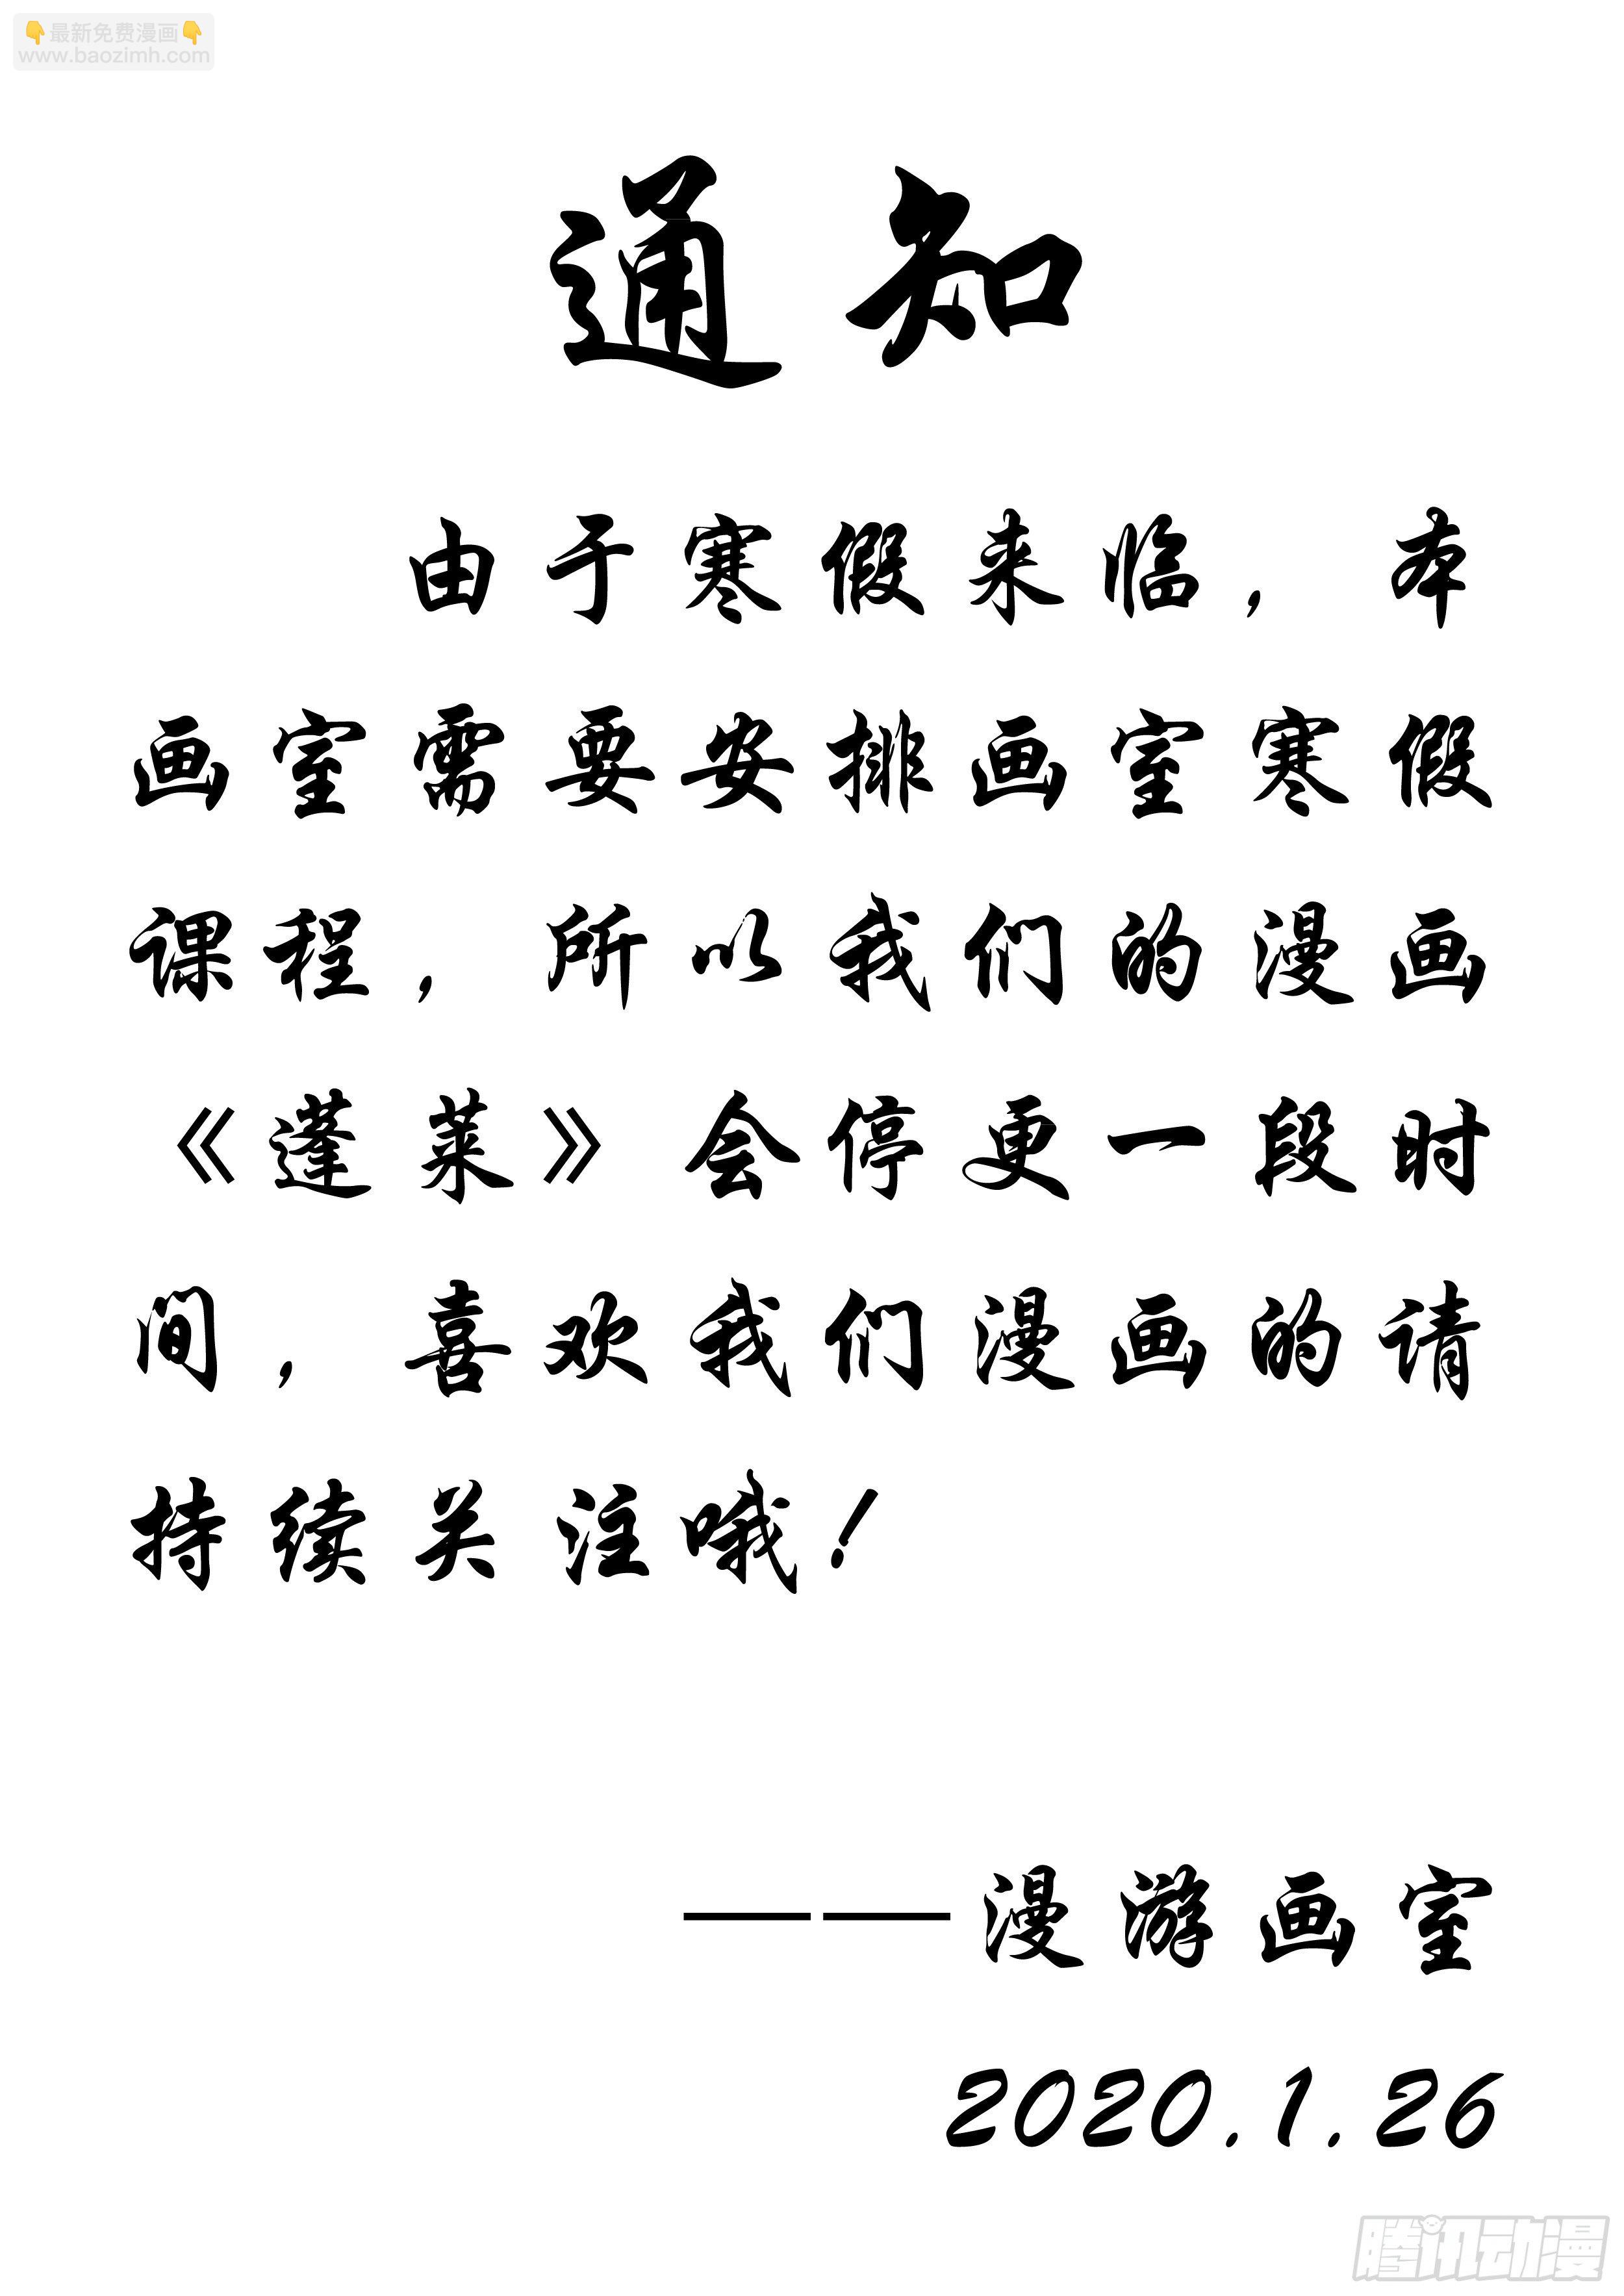 👇最新免费漫画👇
www.baozimh.com
通知
由于寒假来临，本
画室需要安排画室寒假
课程，所以我们的漫画
《蓬莱》会停更一段时
间，喜欢我们漫画的请
持续关注哦！
——漫游画室
2020.1.26
腾讯动漫